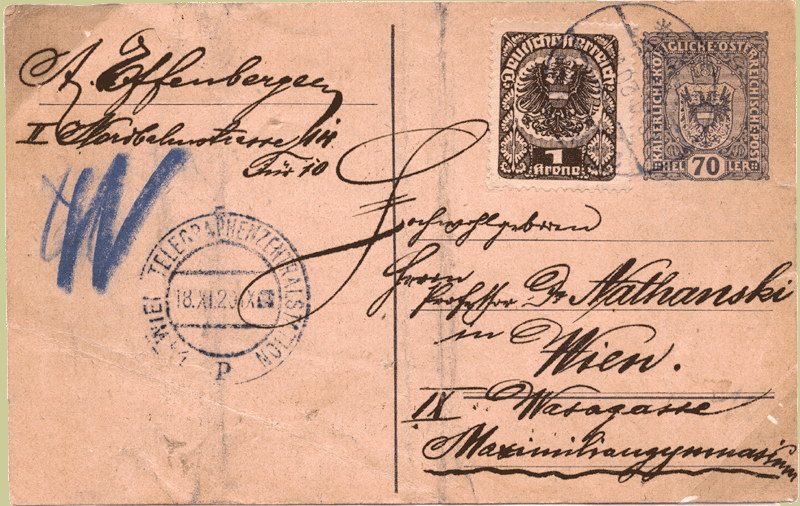 A. Effenberger
II Nordbahnstrasse 14
Tür 10
W
Deutschösterreich
1
Krone
KAISERLICHE KÖNIGLICHE ÖSTERREICHISCHE POST
HELLER
70
TELEGRAPHENZENTRALSTATION
18.XI.20
1 WIEN 1
P
Hochwohlgeboren
Herrn
Professor Dr Nathanski
in
Wien.
IX. Wasagasse
Maximiliangymnasium